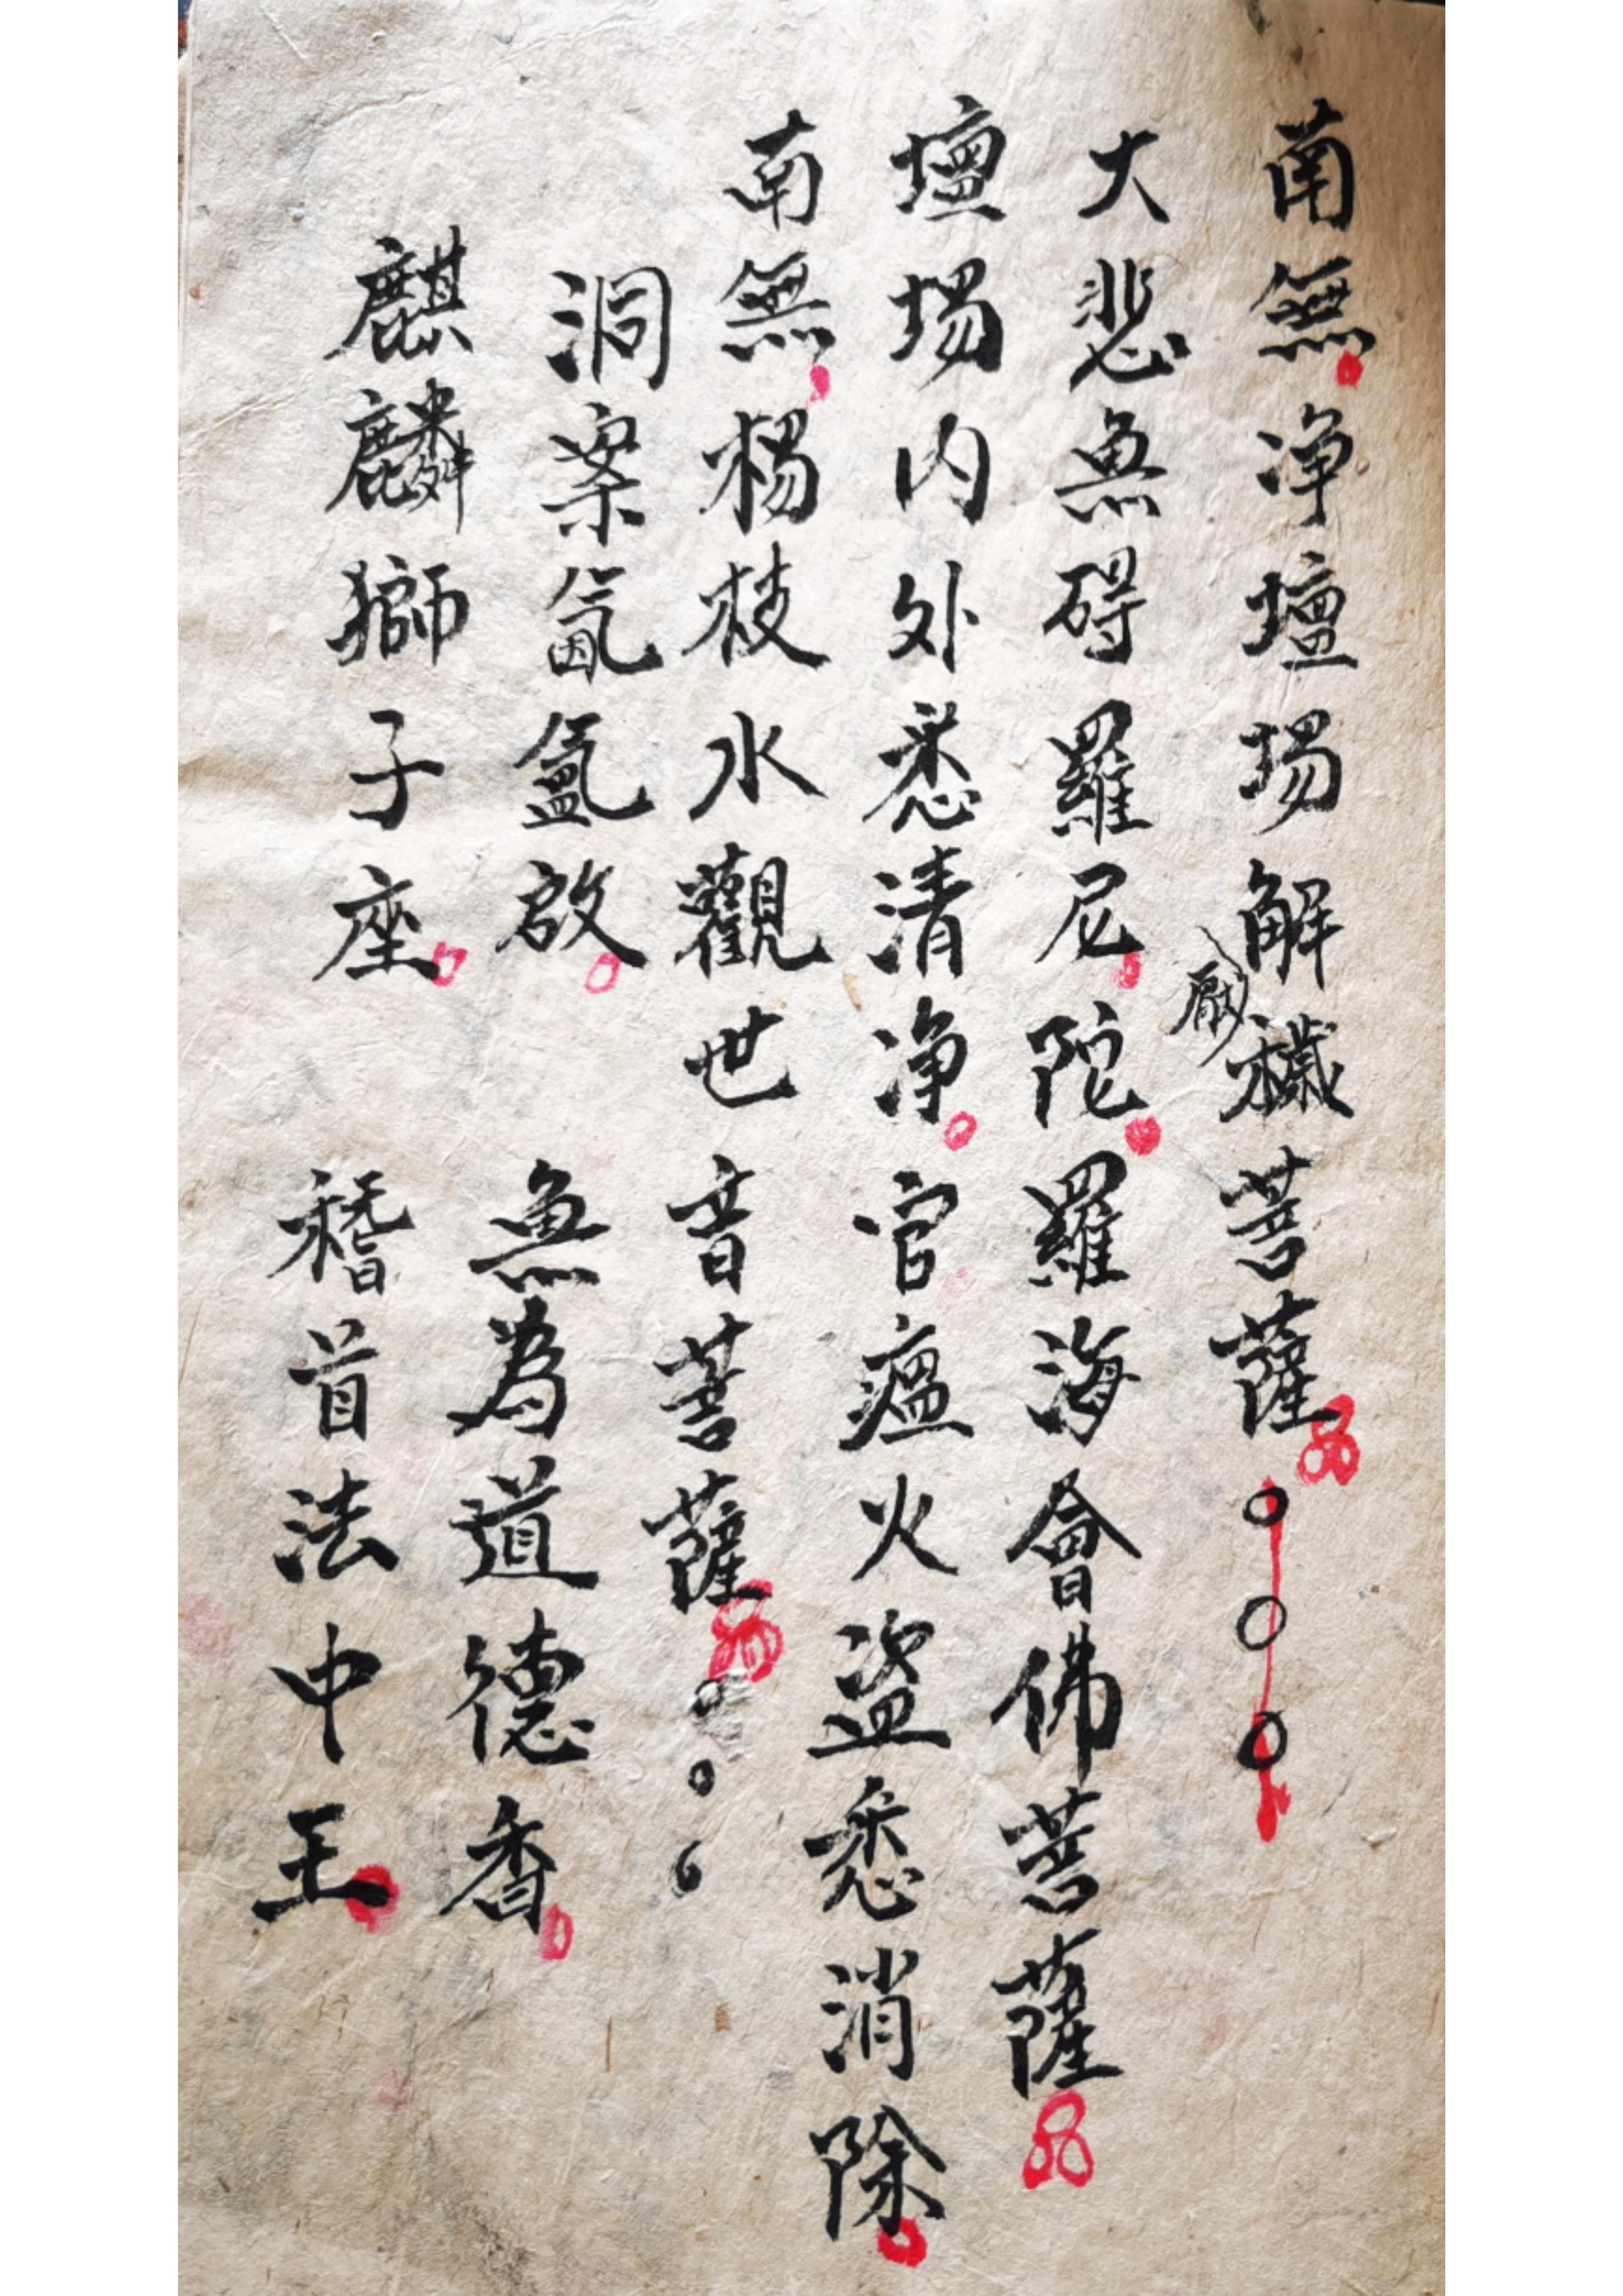 南無净壇場解穢菩薩
厭
大悲無碍羅尼陀羅海會佛菩薩
壇場内外悉清净官瘟火盗悉消除
南無楊枝水觀世音菩薩
洞案氤氳啟無為道德香
麒麟獅子座稽首法中王